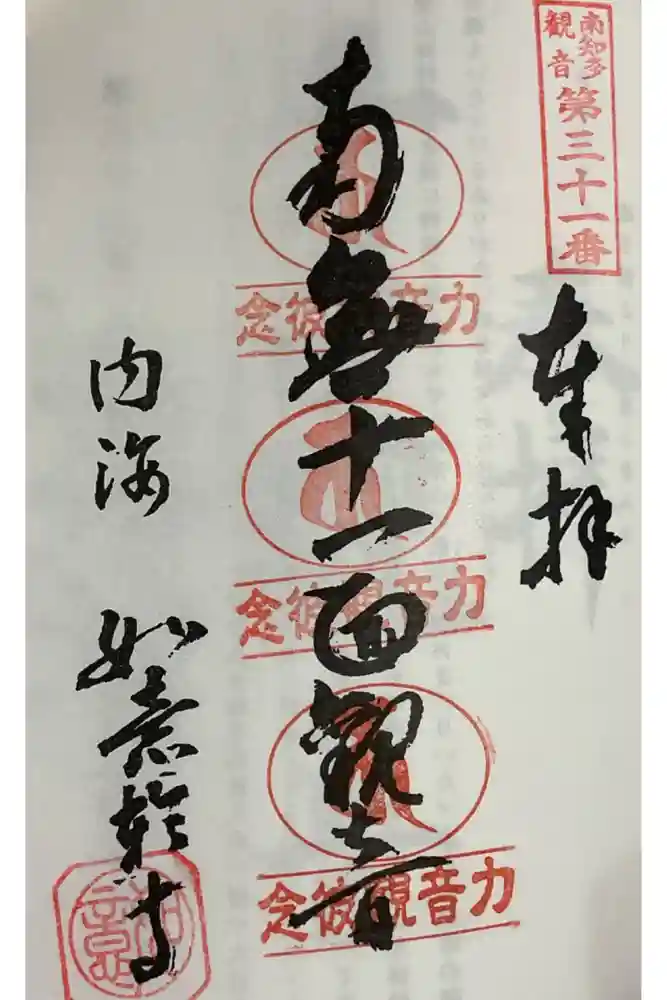 南知多
観音
第三十一番
奉拝
南無十一面觀音
念彼觀音力
念彼觀音力
念彼觀音力
内海
如意輪寺
如意